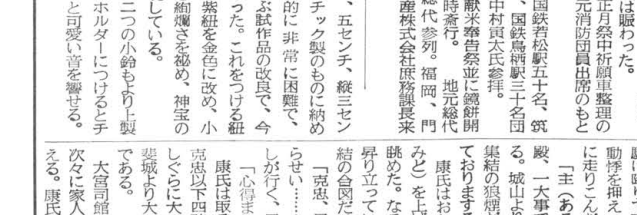 は賑わった。
正月祭中祈願車整理の
元消防団員出席のもと
国鉄若松駅五十名、筑
、国鉄鳥栖駅三十名団
中村寅太氏参拝。
献米奉告祭並に鏡餅開
時斎行。 地元総代
総代参列。福岡、門
産株式会社庶務課長来
、五センチ、縦三セン
チック製のものに納め
的に非常に困難で、
ぶ試作品の改良で、今
った。これをつける紐
紫紐を金色に改め、小
絢爛さを秘め、神宝の
している。
二つの小鈴もより上製
ホルダーにつけるとチ
と可愛い音を響せる。
動悸を押え
に走りこん
「主（あ
殿、一大事
る。城山より
集結の狼煙
ておりまする
康氏はお
みと）を上
眺めた。な
昇り立って
結の合図だ
「克忠、
らせい……
しが行く、
「心得ま
康氏は取
克忠以下四
しぐらに大
斐城より大
である。
大宮司館
次々に家人
える。康氏